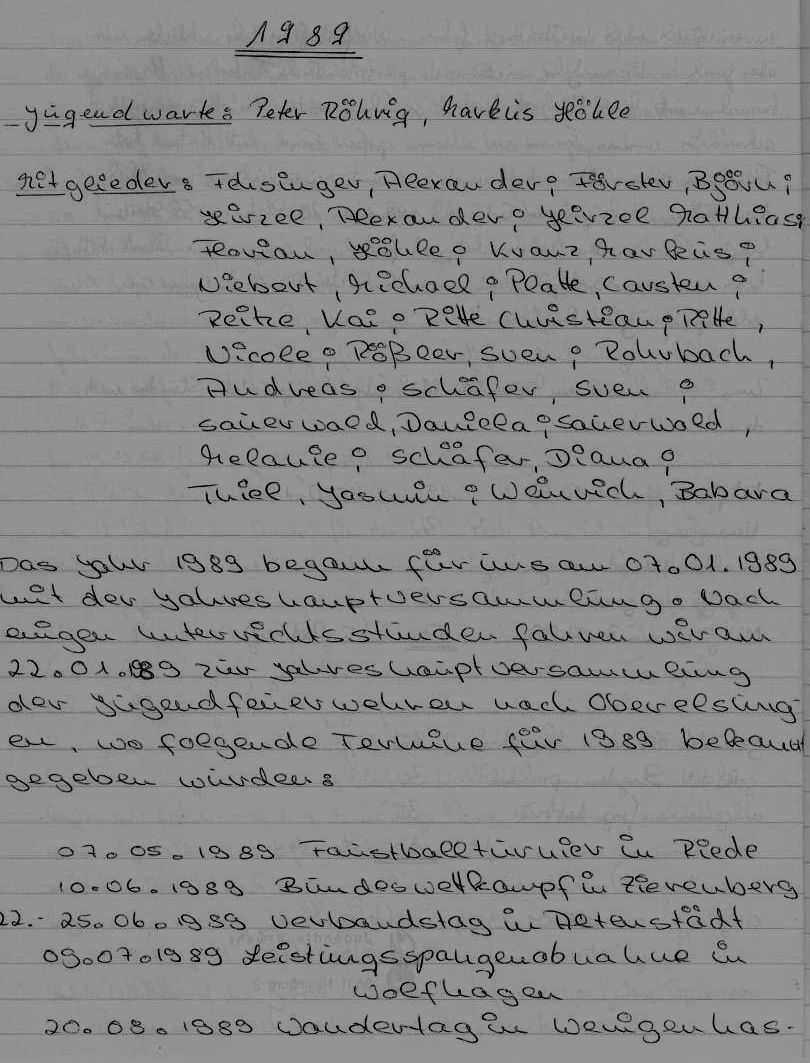 1989
Jugendwarte: Peter Röhrig, Markus Höhle
Mitglieder: Fdisinger, Alexander; Förster, Björn;
Hirzel, Alexander; Hirzel Matthias;
Florian, Höhle; Kranz, Markus;
Niebert, Michael; Platte, Carsten;
Reitze, Kai; Ritte Christian; Ritte,
Nicole; Rößler, Sven; Rohrbach,
Andreas; Schäfer, Sven;
Sauerwald, Daniela; Sauerwald,
Melanie; Schäfer, Diana;
Thiel, Yasmin; Weinrich, Babara
Das Jahr 1989 begann für uns am 07.01.1989
mit der Jahreshauptversammlung. Nach
einigen Unterrichtsstunden fahren wir am
22.01.1989 zur Jahreshauptversammlung
der Jugendfeuerwehren nach Oberelsung-
en, wo folgende Termine für 1989 bekannt
gegeben wurden:
07.05.1989 Faustballturnier in Riede
10.06.1989 Bundeswettkampf in Zierenberg
22.- 25.06.1989 Verbandstag in Altenstädt
09.07.1989 Leistungsspangenabnahme in
Wolfhagen
20.08.1989 Wandertag in Wenigenhas-